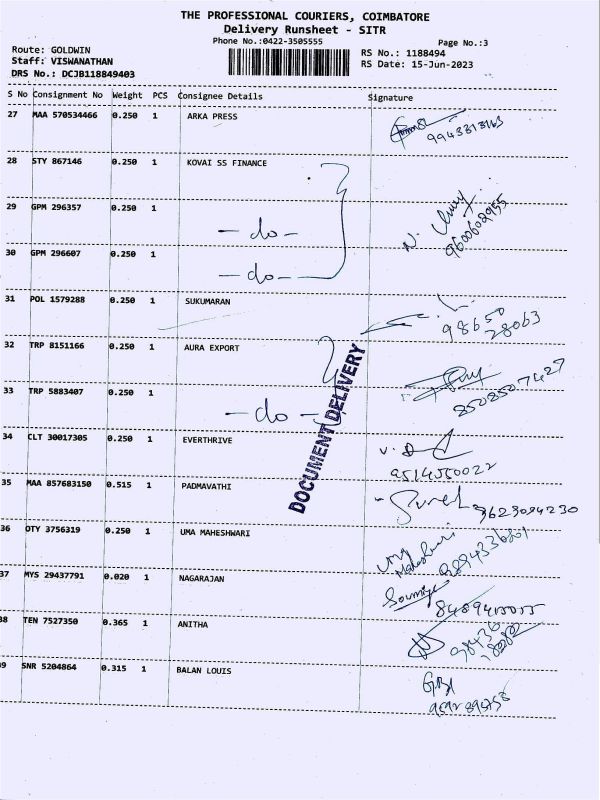 THE PROFESSIONAL COURIERS, COIMBATORE
Delivery Runsheet - SITR
Phone No.:0422-3505555
Page No.:3
Route: GOLDWIN
RS No.: 1188494
Staff: VISWANATHAN
RS Date: 15-Jun-2023
DRS No.: DCJB118849403
S No Consignment No Weight PCS Consignee Details Signature
27 MAA 570534466 0.250 1 ARKA PRESS
9943313163
28 STY 867146 0.250 1 KOVAI SS FINANCE
29 GPM 296357 0.250 1
-do-
9600602955
30 GPM 296607 0.250 1
-do-
31 POL 1579288 0.250 1 SUKUMARAN
98650
28063
32 TRP 8151166 0.250 1 AURA EXPORT
8508507427
33 TRP 5883407 0.250 1
-do-
DOCUMENT DELIVERY
34 CLT 30017305 0.250 1 EVERTHRIVE
9514550022
35 MAA 857683150 0.515 1 PADMAVATHI
Suresh
36 OTY 3756319 0.250 1 UMA MAHESHWARI
Uma
Maheshwari
37 MYS 29437791 0.020 1 NAGARAJAN
Soumiya
38 TEN 7527350 0.365 1 ANITHA
39 SNR 5204864 0.315 1 BALAN LOUIS